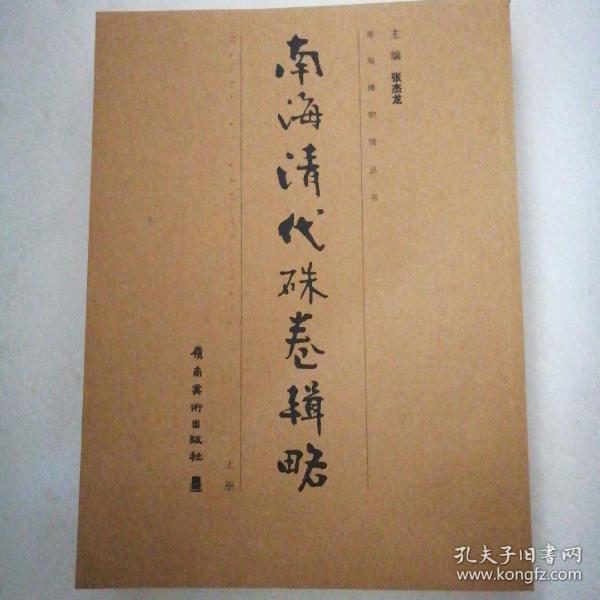 主编 张杰龙
南海博物馆丛书
南海清代硃卷辑略
上册
嶺南美術出版社
孔夫子旧书网
www.kongfz.com